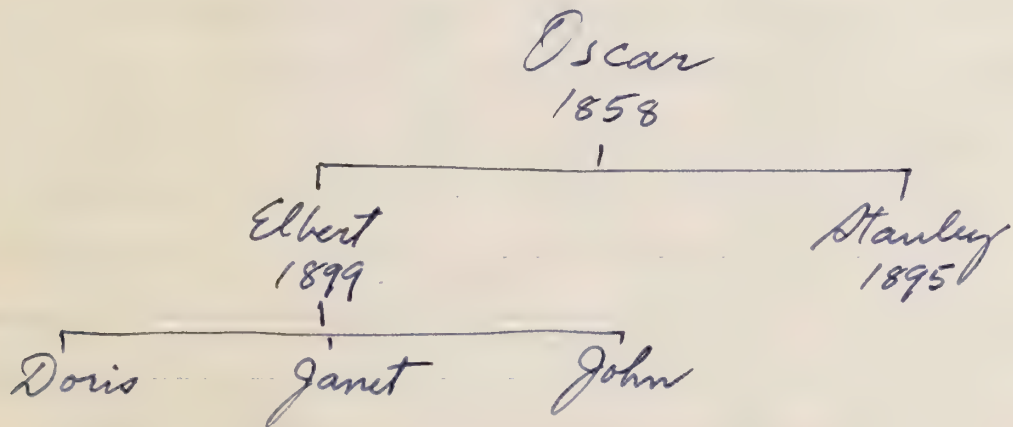 Oscar
1858
Elbert Stanley
1899 1895
Doris Janet John